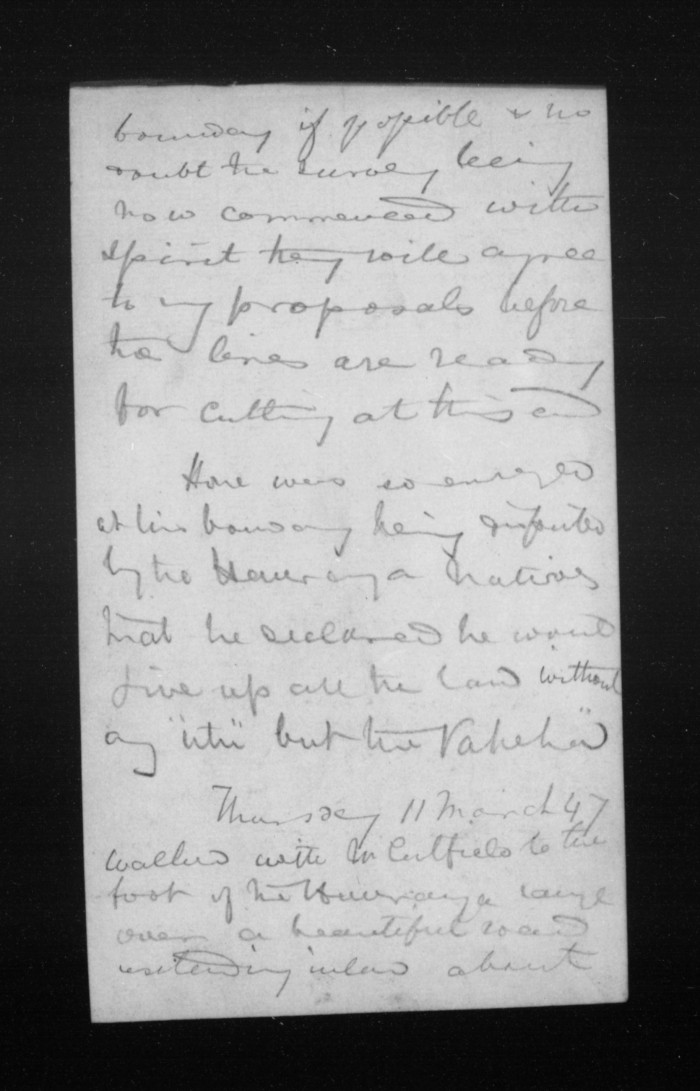 boundary if possible & no
doubt the survey being
now commenced with
spirit they will agree
to my proposals before
the lines are ready
for cutting at this end
Hone was so enraged
at his boundary being disputed
by the Hauranga natives
that he declared he would
give up all the land without
any "utu" but the Pakeha
Thursday 11 March 47
walked with Mr to the
foot of the Hauranga range
over a beautiful road
extending inland about